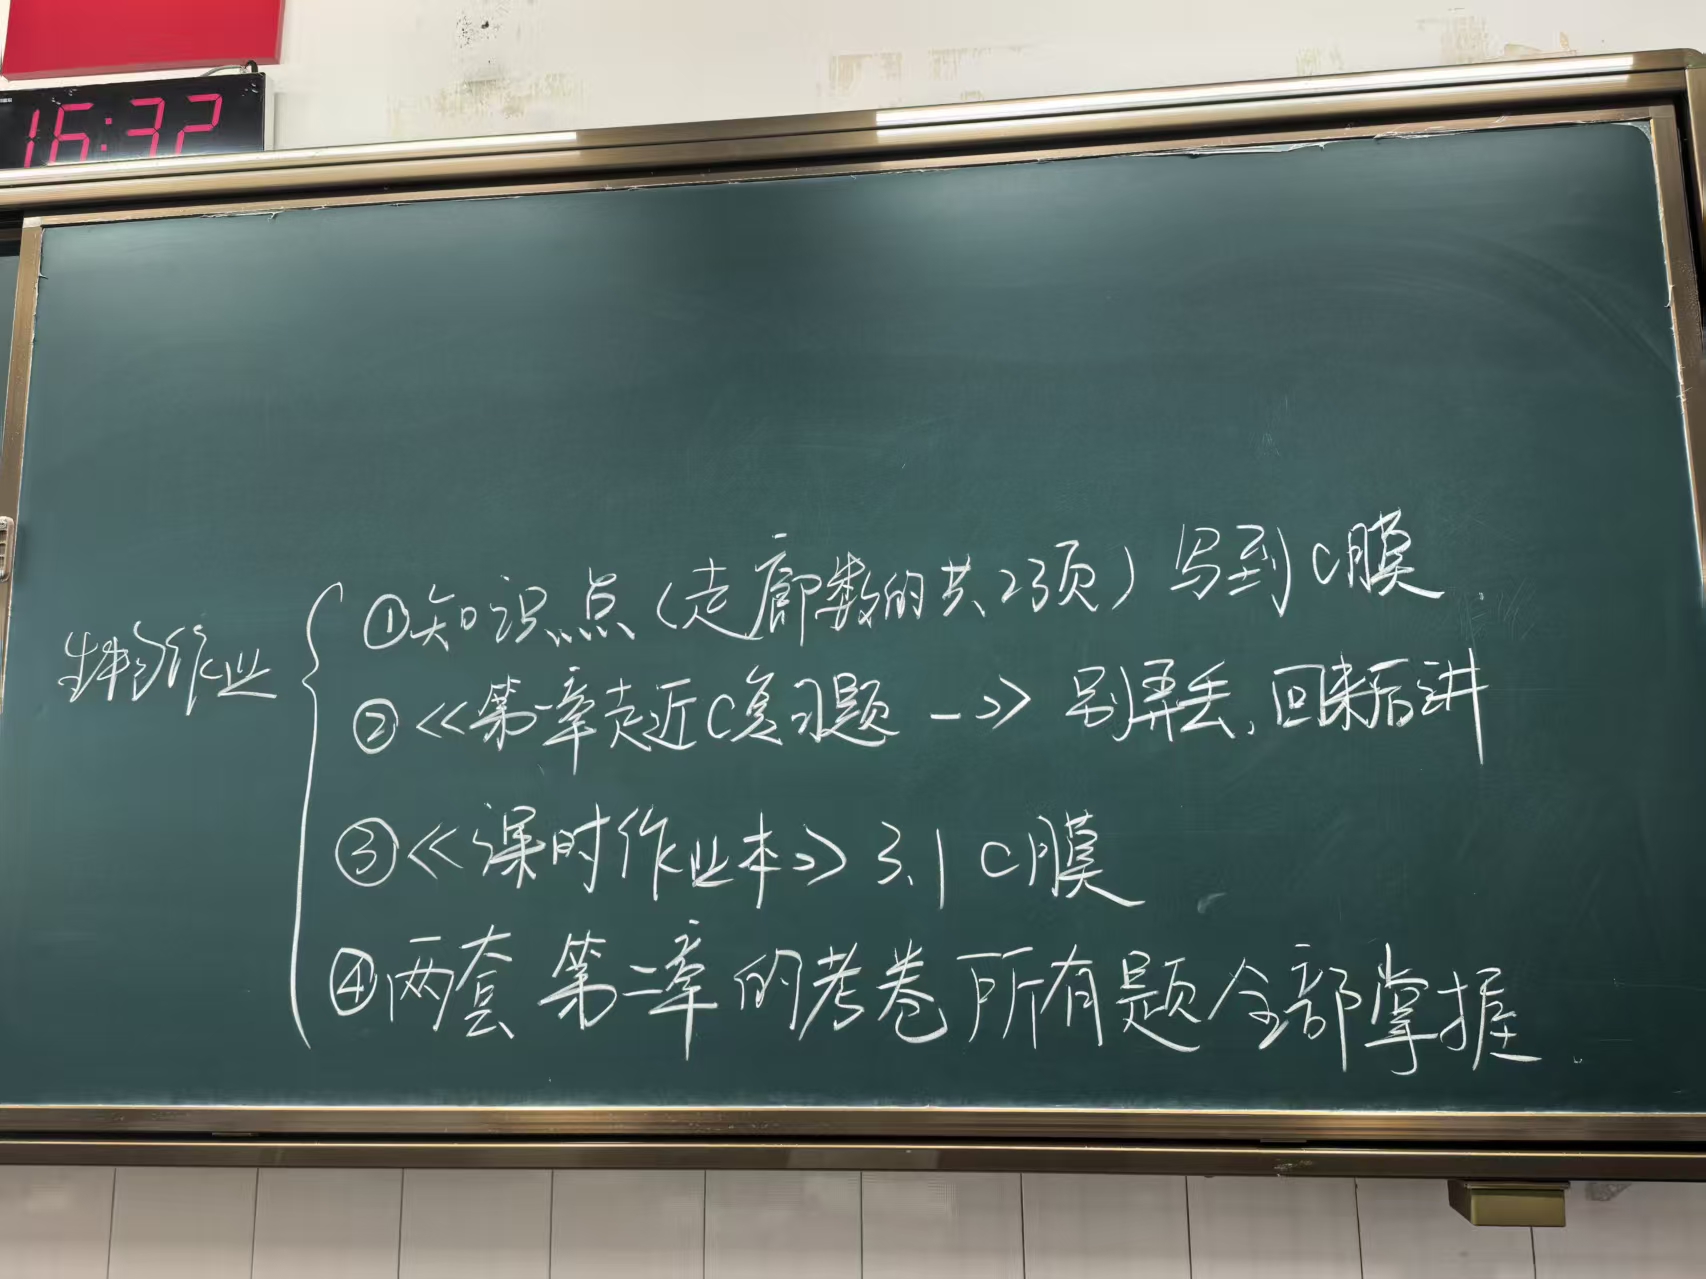 16:32
生物作业
①知识点(走廊数的共23项)写到C膜.
②《第一章走近C复习题 一》别弄丢,回来后讲
③《课时作业本》3.1 C膜
④两套 第二章的考卷所有题全部掌握.